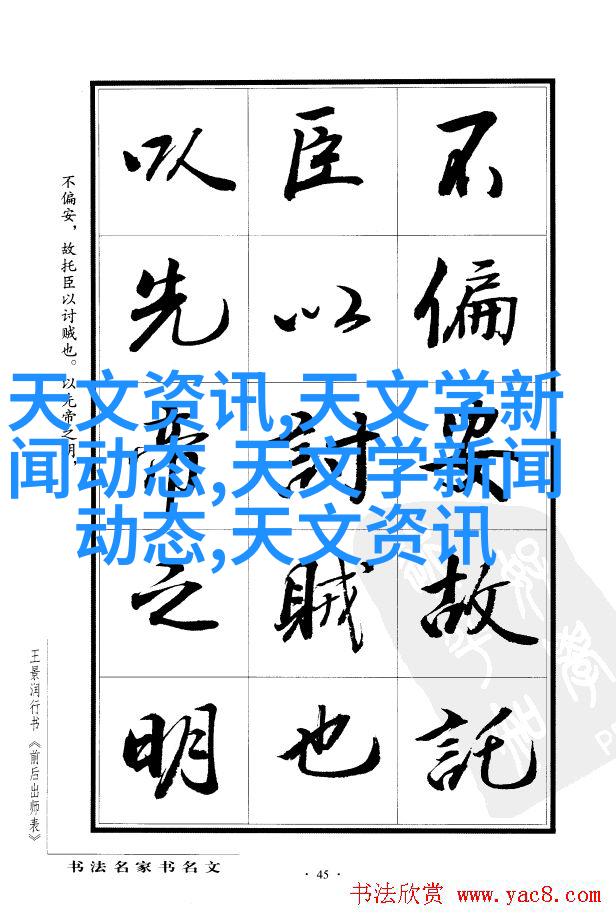 不偏安故託
臣以討賊也
以先帝之明
不偏安，故托臣以讨贼也。以先帝之明，
天文资讯,天文学新
闻动态,天文学新闻
动态,天文资讯
王景润行书《前后出师表》
书法名家书名文
· 45 ·
书法欣赏 www.yac8.com